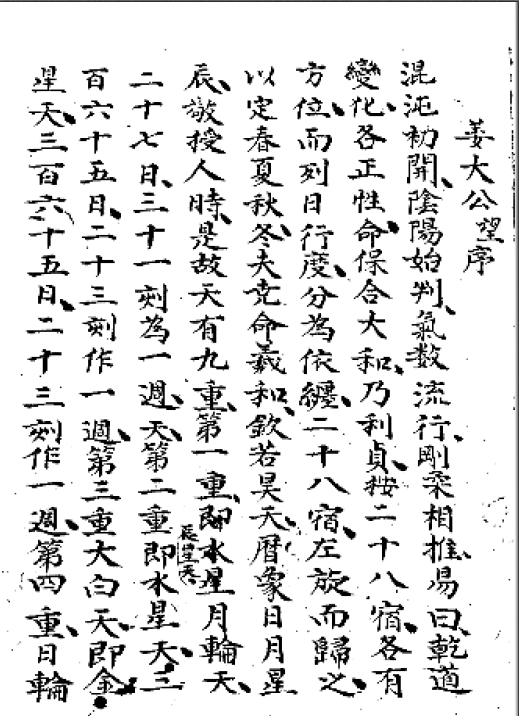 姜大公望序
混沌初開、陰陽始判、氣数流行、剛柔相推、易曰、乾道
變化、各正性命、保合大和、乃利貞、按二十八宿、各有
方位、而列日行度、分為依纏、二十八宿、左旋而歸之、
以定春夏秋冬、夫尭命羲和、欽若昊天、暦象日月星
辰、敬授人時、是故天有九重、第一重、即水星月輪天、
辰星天
二十七日、三十一刻為一週、天、第二重即水星天、三
百六十五日、二十三刻作一週、第三重大白天、即金
星天、三百六十五日、二十三刻作一週、第四重、日輪